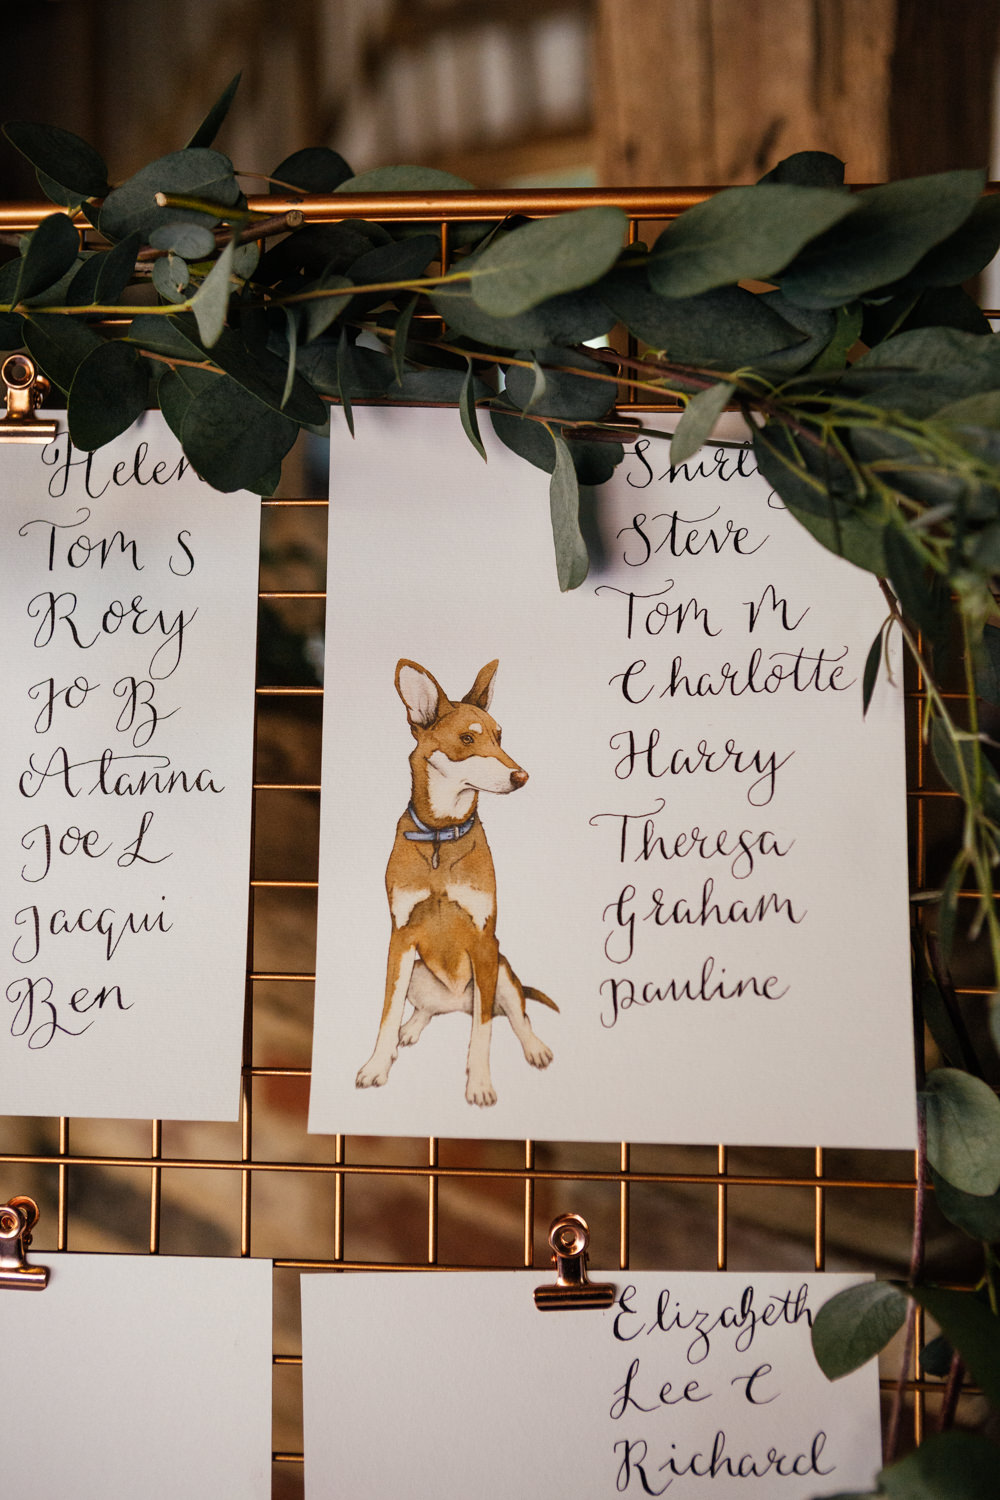 Helen
Tom S
Rory
Jo B
Alanna
Joe L
Jacqui
Ben
Shirley
Steve
Tom M
Charlotte
Harry
Theresa
Graham
Pauline
Elizabeth
Lee C
Richard